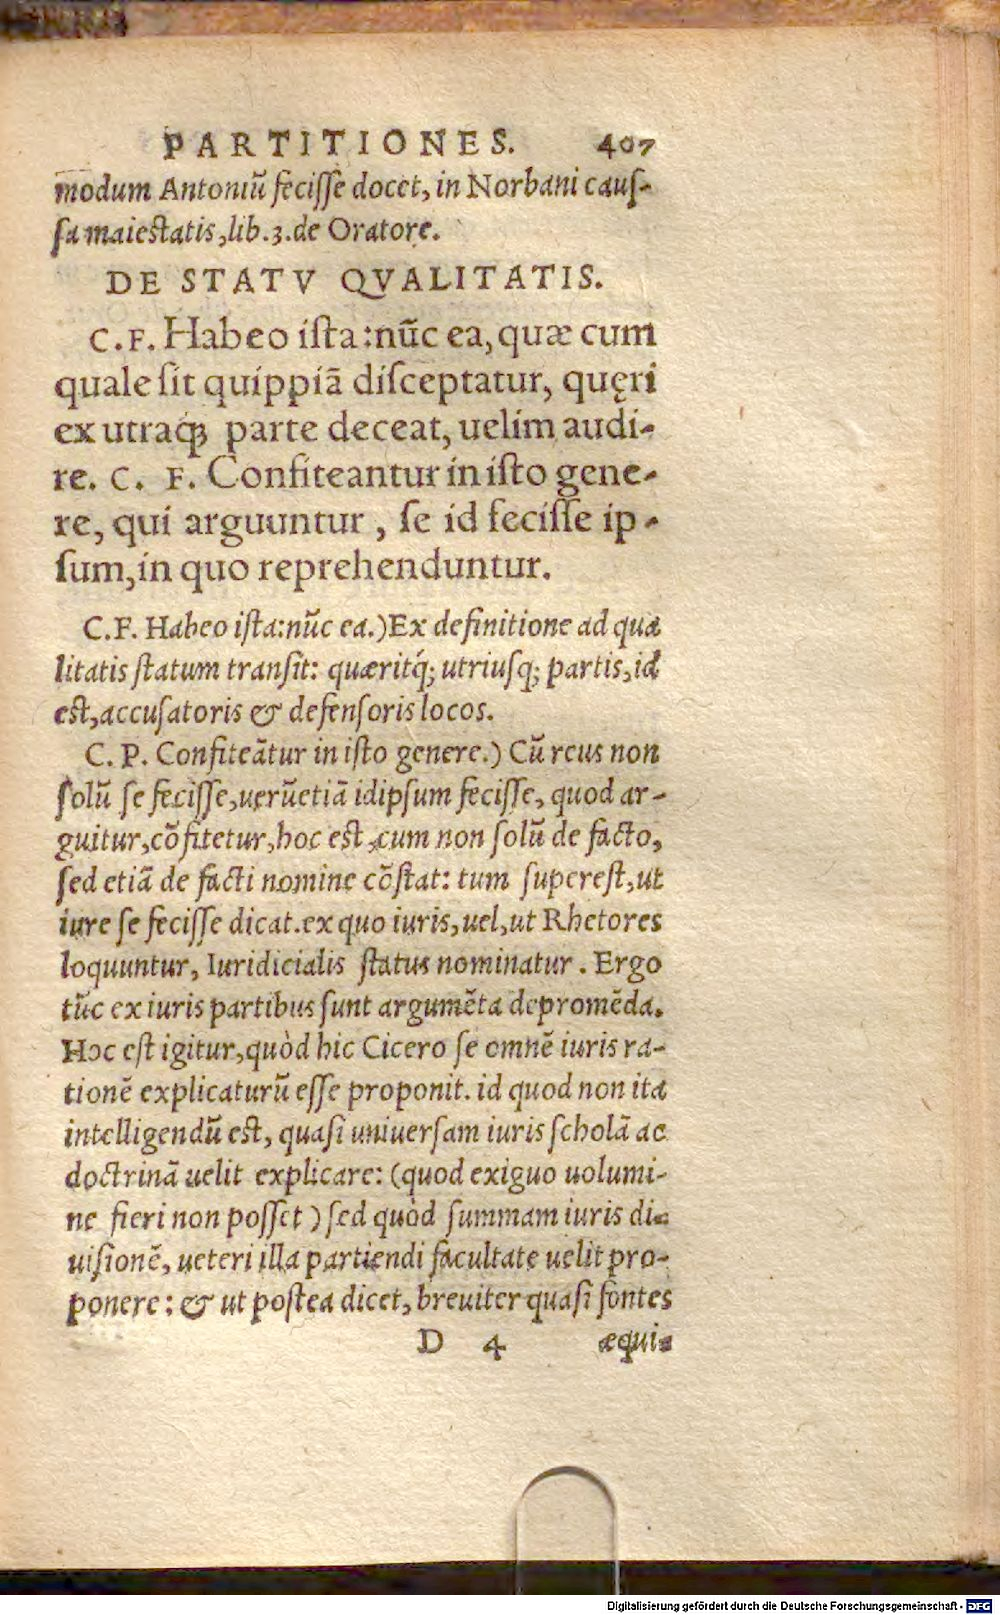 PARTITIONES. 407
modum Antoniū fecisse docet, in Norbani caus-
sa maiestatis, lib.3.de Oratore.
DE STATV QVALITATIS.
C.F. Habeo ista: nūc ea, quæ cum
quale sit quippiā disceptatur, quęri
ex utraq; parte deceat, uelim audi-
re. C. F. Confiteantur in isto gene-
re, qui arguuntur, se id fecisse ip-
sum, in quo reprehenduntur.
C.F. Habeo ista: nūc ea.) Ex definitione ad qua
litatis statum transit: quæritq́; utriusq; partis, id
est, accusatoris & defensoris locos.
C. P. Confiteātur in isto genere.) Cū reus non
solū se fecisse, uerūetiā idipsum fecisse, quod ar-
guitur, cōfitetur, hoc est, cum non solū de facto,
sed etiā de facti nomine cōstat: tum superest, ut
iure se fecisse dicat. ex quo iuris, uel, ut Rhetores
loquuntur, Iuridicialis status nominatur. Ergo
tūc ex iuris partibus sunt argumēta depromēda.
Hoc est igitur, quòd hic Cicero se omnē iuris ra-
tionē explicaturū esse proponit. id quod non ita
intelligendū est, quasi uniuersam iuris scholā ac
doctrinā uelit explicare: (quod exiguo uolumi-
ne fieri non posset) sed quòd summam iuris di-
uisionē, ueteri illa partiendi facultate uelit pro-
ponere: & ut postea dicet, breuiter quasi fontes
D 4 æqui-
Digitalisierung gefördert durch die Deutsche Forschungsgemeinschaft - DFG